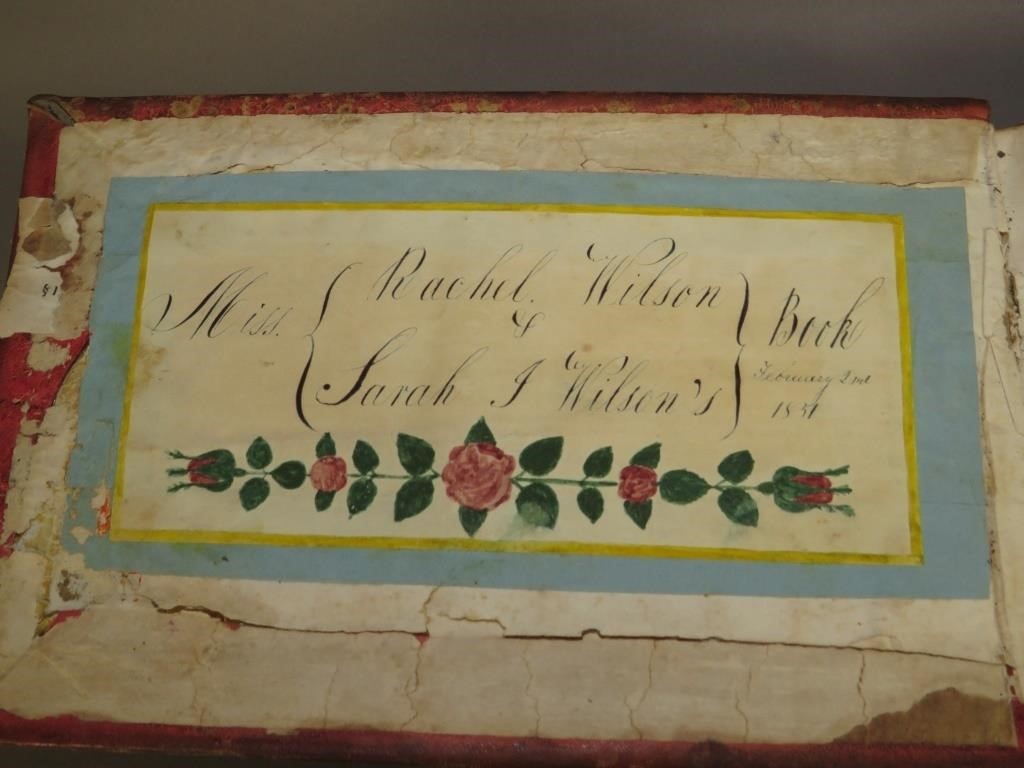 Miss. { Rachel. Wilson } Book
&
Sarah I Wilson's
February 2nd
1851
§1